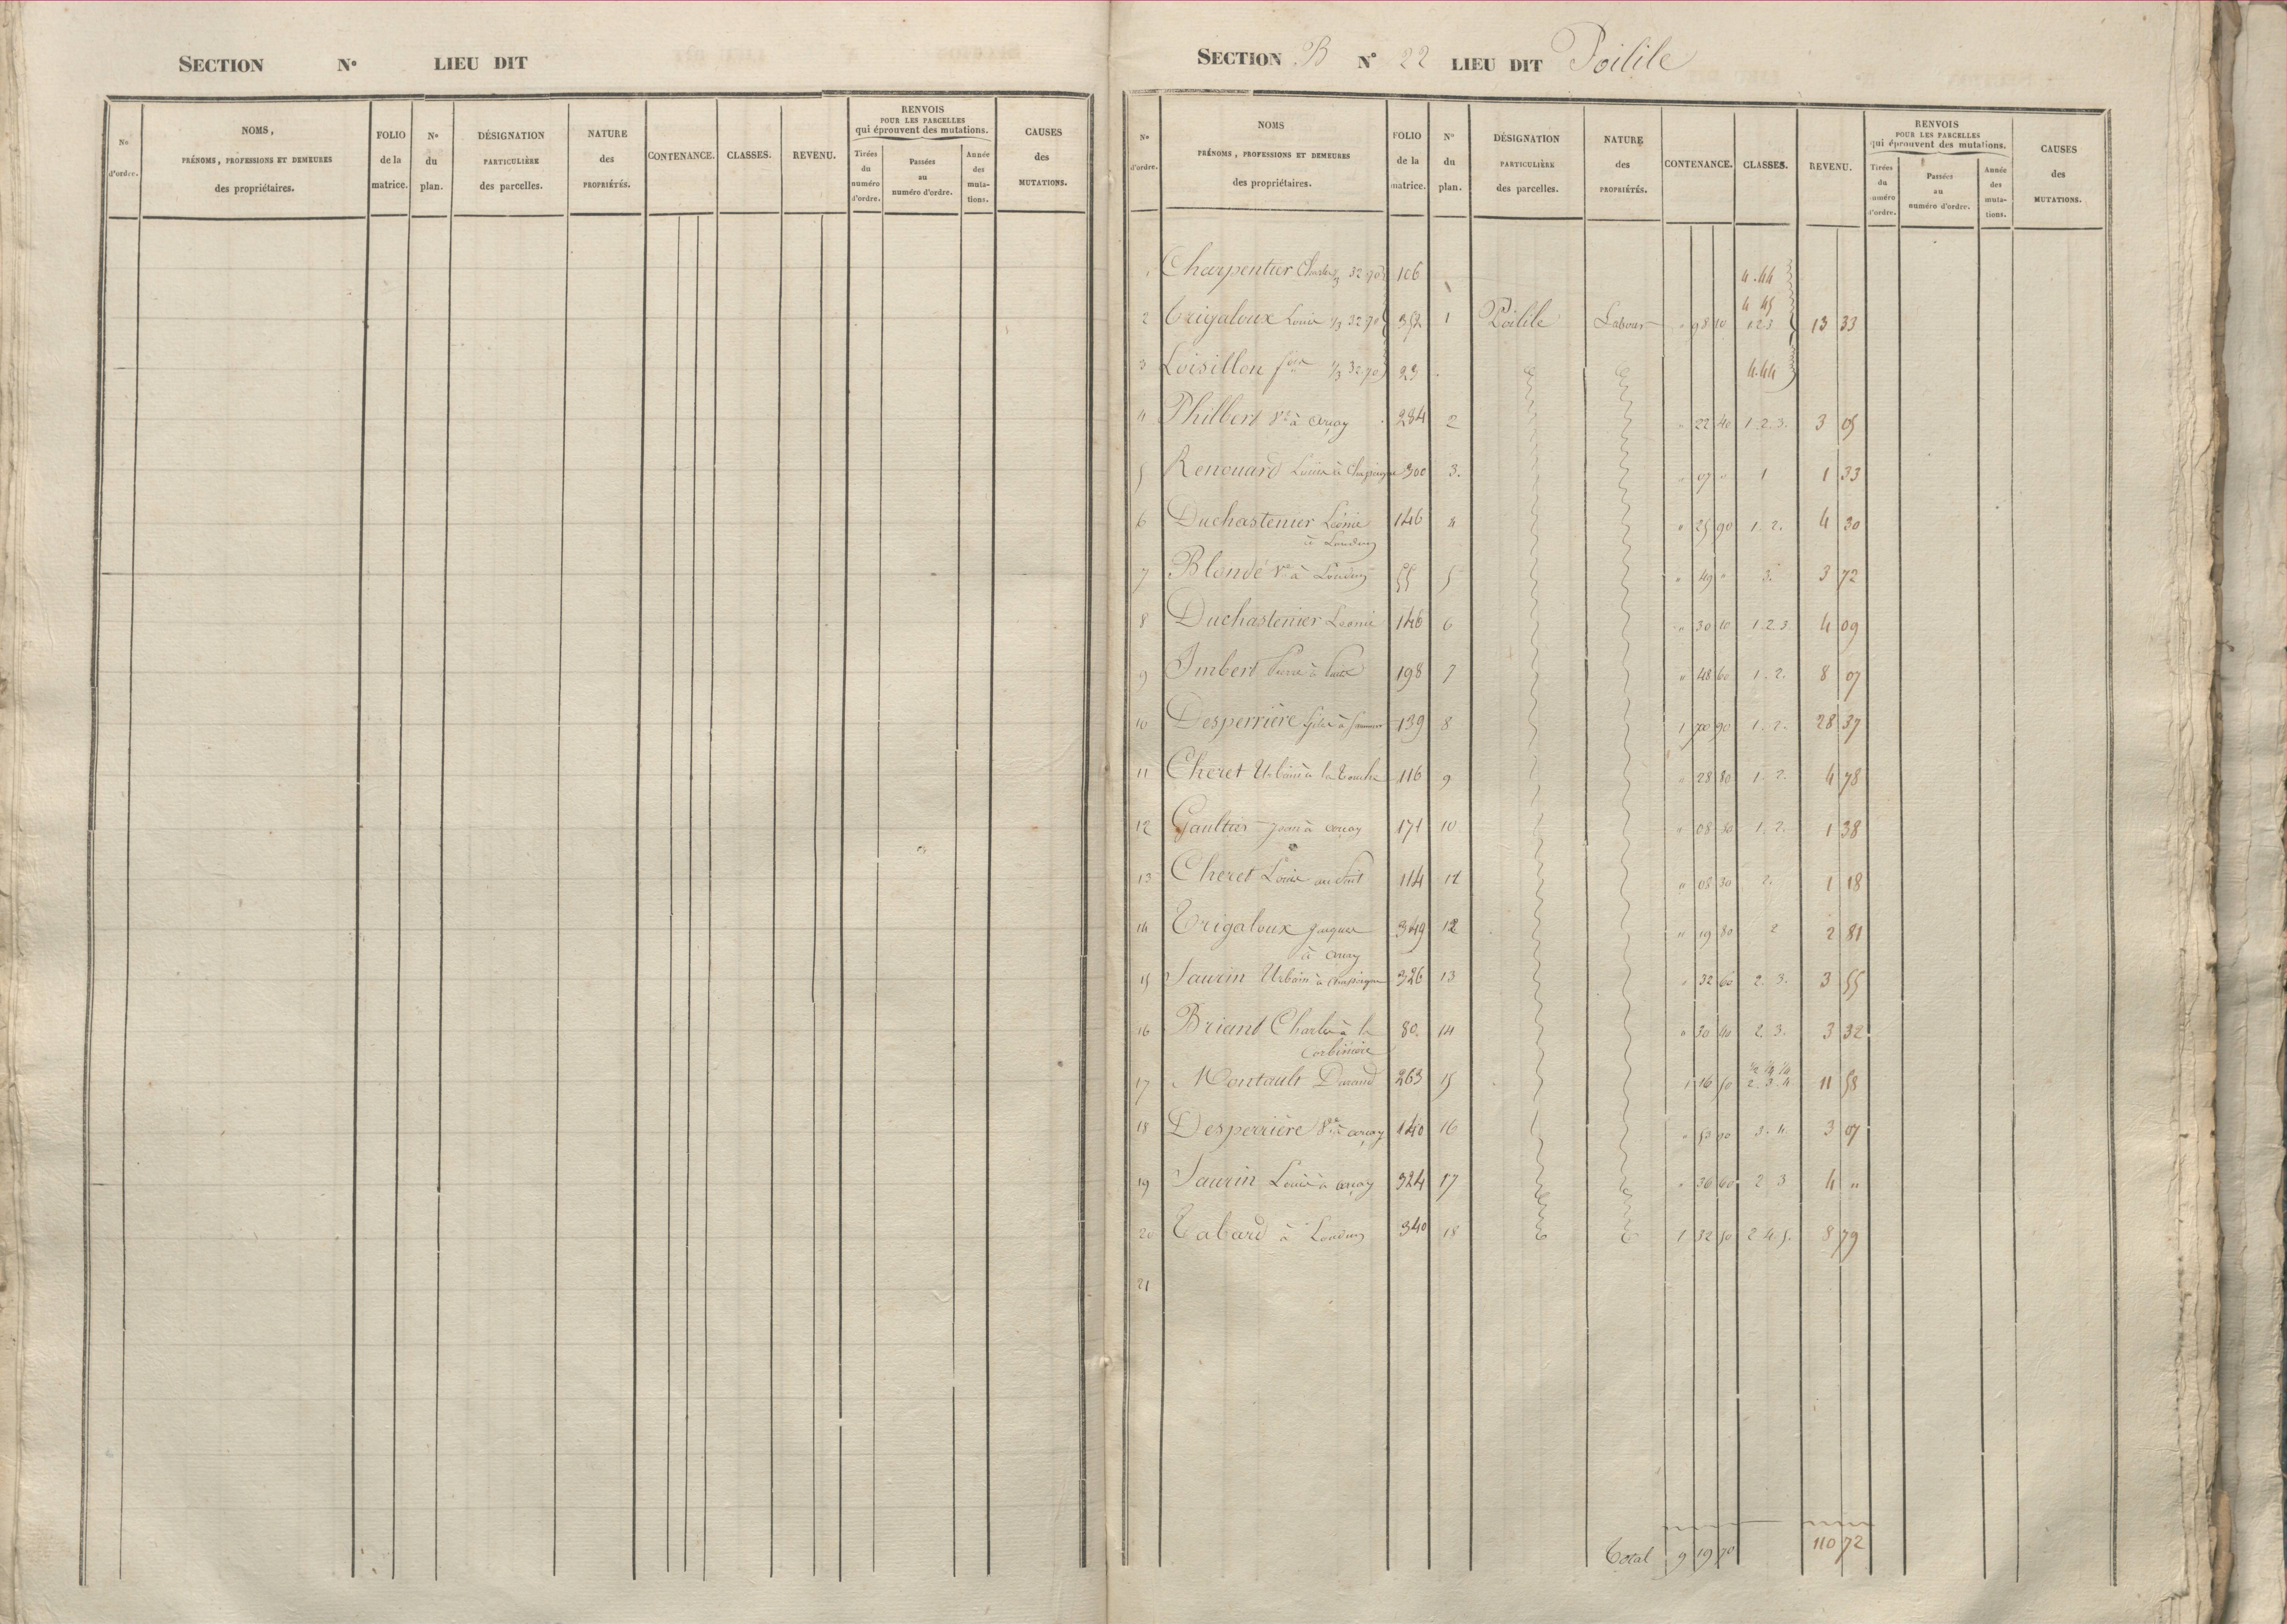 SECTION N° LIEU DIT
No d'ordre.
NOMS,
PRÉNOMS, PROFESSIONS ET DEMEURES
des propriétaires.
FOLIO de la matrice.
No du plan.
DÉSIGNATION PARTICULIÈRE des parcelles.
NATURE des PROPRIÉTÉS.
CONTENANCE.
CLASSES.
REVENU.
RENVOIS
POUR LES PARCELLES
qui éprouvent des mutations.
Tirées du numéro d'ordre.
Passées au numéro d'ordre.
Année des mutations.
CAUSES des MUTATIONS.
SECTION B N° 22 LIEU DIT Poilile
No d'ordre.
NOMS
PRÉNOMS, PROFESSIONS ET DEMEURES
des propriétaires.
FOLIO de la matrice.
No du plan.
DÉSIGNATION PARTICULIÈRE des parcelles.
NATURE des PROPRIÉTÉS.
CONTENANCE.
CLASSES.
REVENU.
RENVOIS
POUR LES PARCELLES
qui éprouvent des mutations.
Tirées du numéro d'ordre.
Passées au numéro d'ordre.
Année des mutations.
CAUSES des MUTATIONS.
1 Charpentier Charles 1/3 32.70 106 4.44
4 45
2 Trigaloux Louis 1/3 32 70 352 1 Poilile Labour " 98 10 1 2 3 13 33
3 Loisillon 1/3 32.70 23 4.44
4 Philbert Ve à Arçay 284 2 " 22 40 1.2.3. 3 05
5 Renouard Louis à Chassigne 300 3. " 07 " 1 1 33
6 Duchastenier Léonie 146 4 " 25 90 1.2. 4 30
à Loudun
7 Blondé Ve à Loudun 55 5 " 49 " 3. 3 72
8 Duchastenier Léonie 146 6 " 30 10 1.2.3. 4 09
9 Imbert Pierre à 198 7 " 48 60 1.2. 8 07
10 Desperrière fils à Saumur 139 8 1 70 90 1.2. 28 37
11 Cheret Urbain à la Touche 116 9 " 28 80 1.2. 4 78
12 Gaultier Jean à Arçay 171 10 " 08 30 1.2. 1 38
13 Cheret Louis au 114 11 " 08 30 2. 1 18
14 Trigaloux Jacques 349 12 " 19 80 2 2 81
à Arçay
15 Saurin Urbain à Chassigne 326 13 " 32 60 2.3. 3 55
16 Briant Charles à la 80. 14 " 30 40 2.3. 3 32
Corbinière
1/2 1/4 1/4
17 Montault Durand 263 15 1 16 50 2.3.4 11 58
18 Desperrière Ve à Arçay 140 16 " 53 10 3.4. 3 07
19 Saurin Louis à Arçay 324 17 " 36 60 2 3 4 "
20 Tabard à Loudun 340 18 1 32 50 2 4.5. 8 79
21
Total 9 19 70 110 72